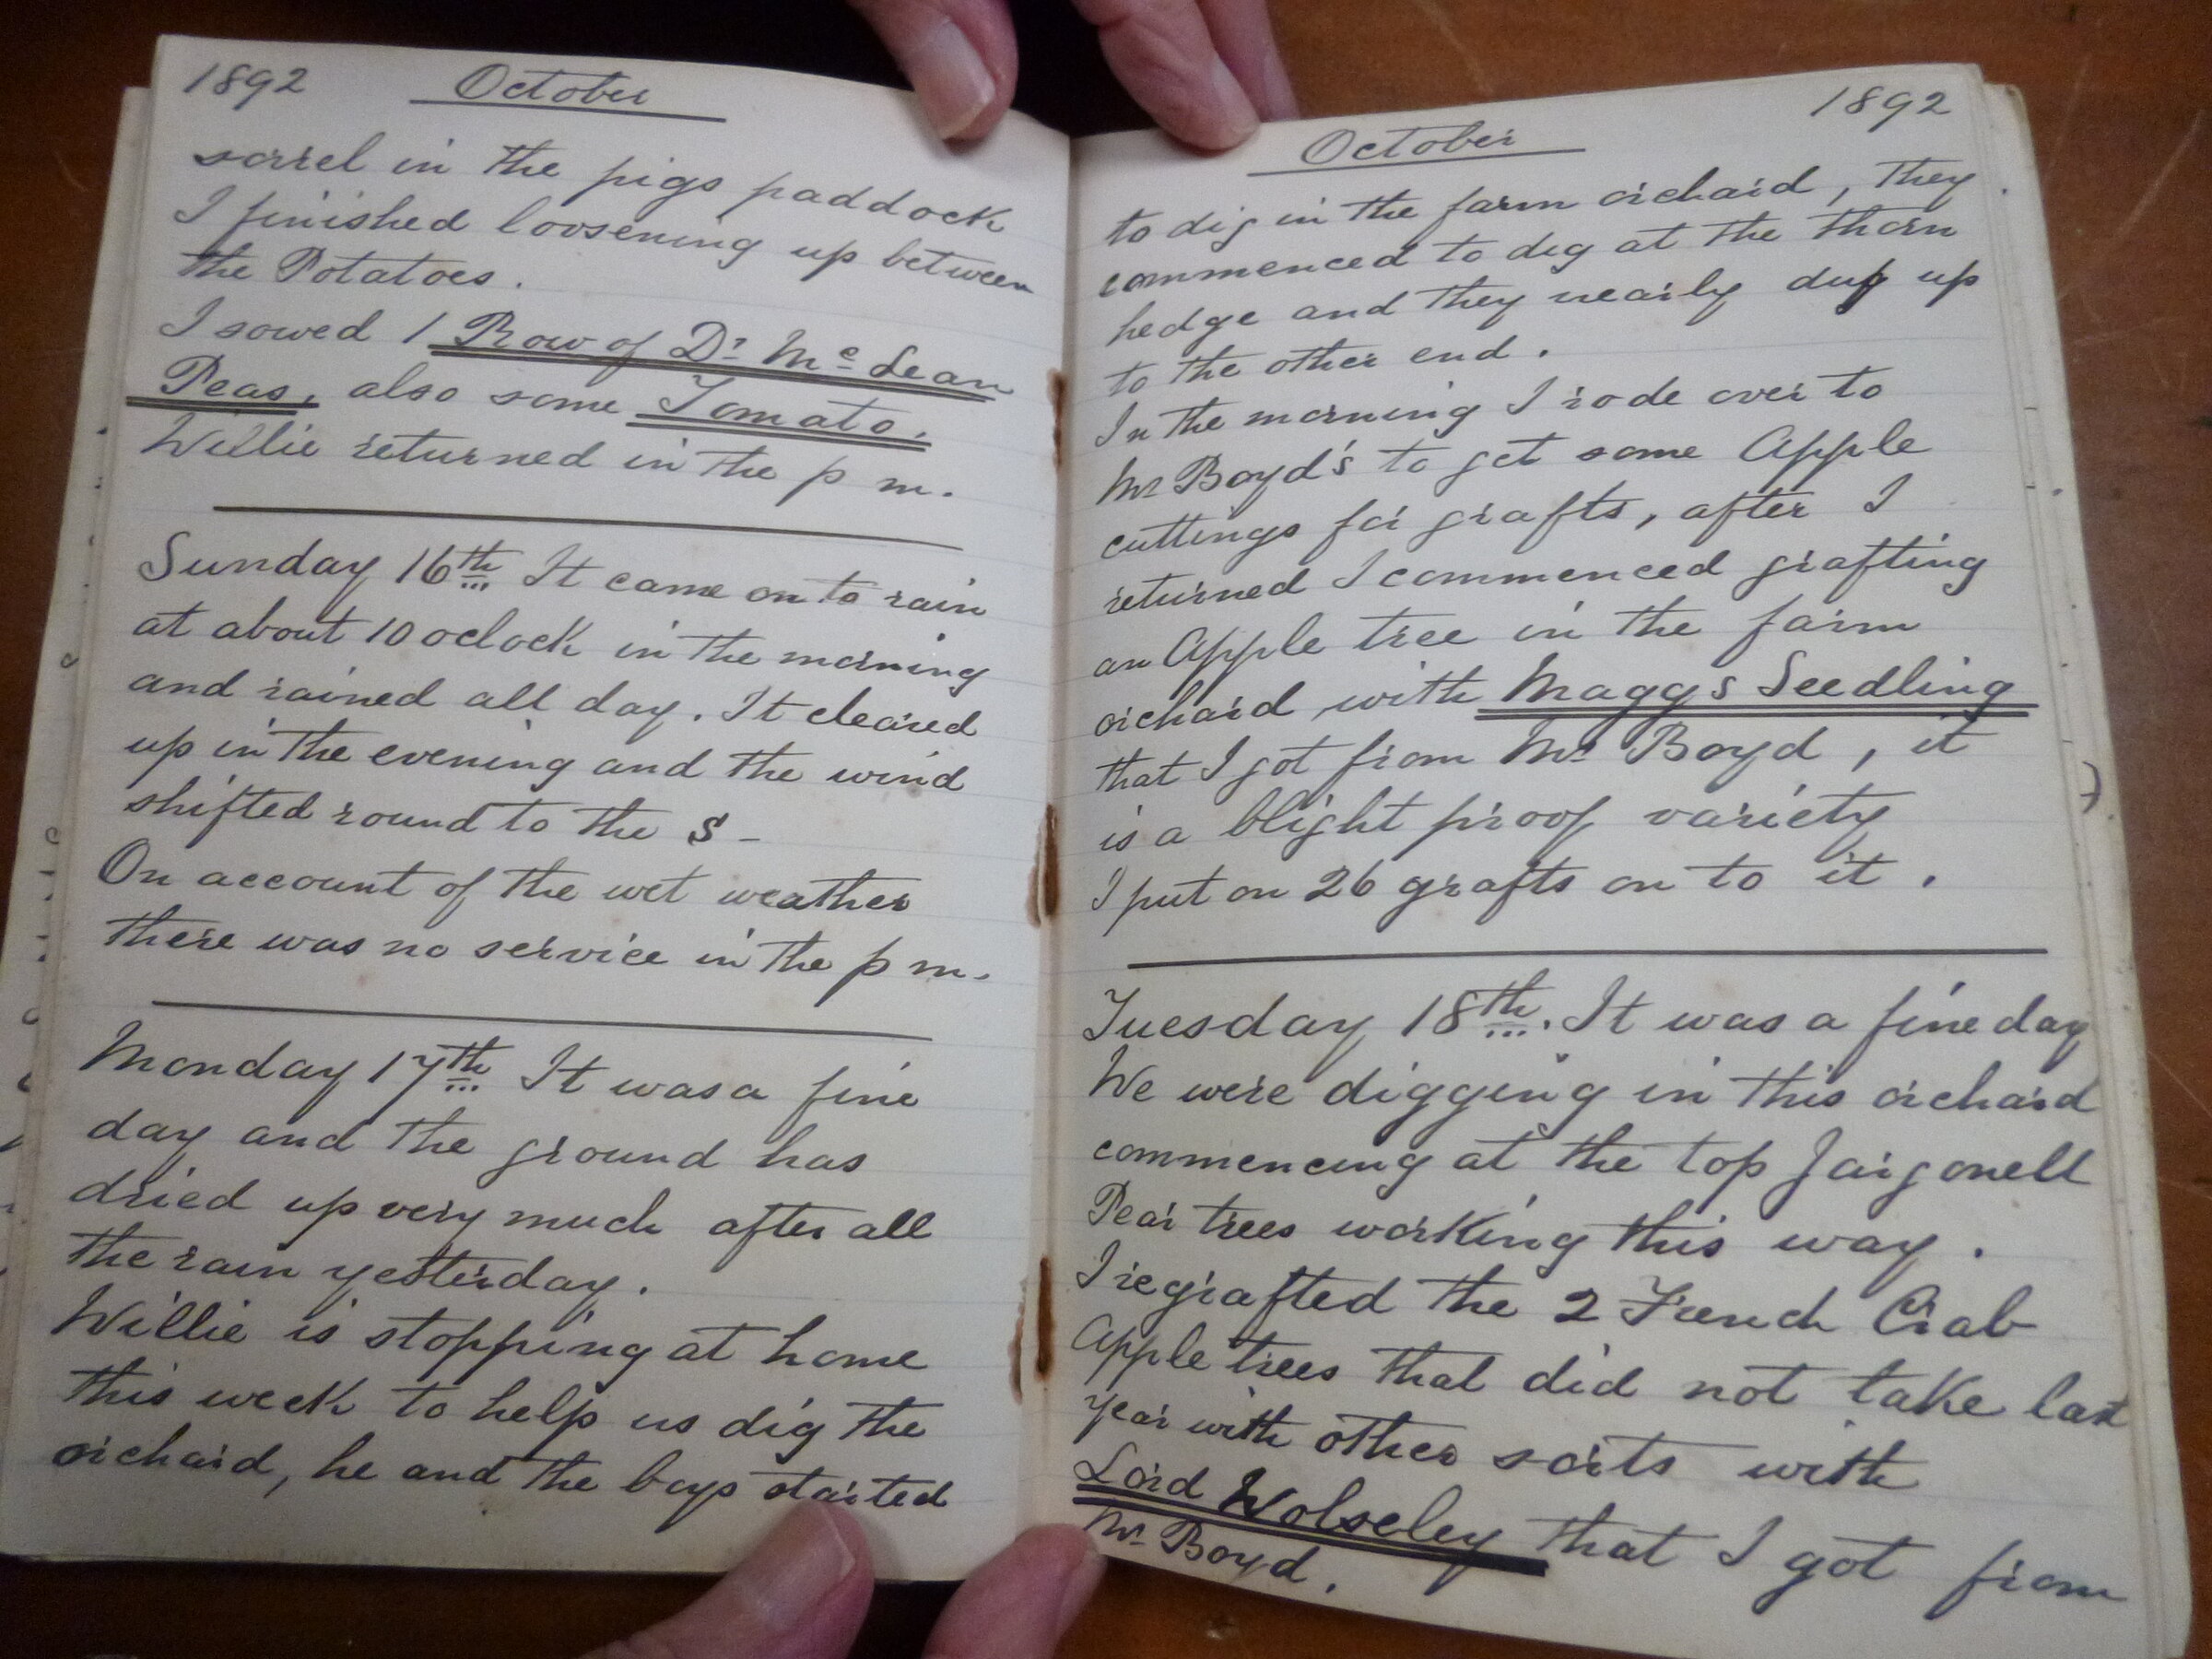 1892 October
sorrel in the pigs paddock
I finished loosening up between
the Potatoes.
I sowed 1 Row of Dr McLean
Peas, also some Tomato.
Willie returned in the p m.
Sunday 16th It came on to rain
at about 10 oclock in the morning
and rained all day. It cleared
up in the evening and the wind
shifted round to the S-
On account of the wet weather
there was no service in the p m.
Monday 17th It was a fine
day and the ground has
dried up very much after all
the rain yesterday.
Willie is stopping at home
this week to help us dig the
orchard, he and the boys started
October 1892
to dig in the farm orchard, they
commenced to dig at the thorn
hedge and they nearly dug up
to the other end.
In the morning I rode over to
Mr Boyd's to get some Apple
cuttings for grafts, after I
returned I commenced grafting
an Apple tree in the farm
orchard with Maggs Seedling
that I got from Mr Boyd, it
is a blight proof variety
I put on 26 grafts on to it.
Tuesday 18th. It was a fine day
We were digging in this orchard
commencing at the top Jargonell
Pear trees working this way.
I regrafted the 2 French Crab
Apple trees that did not take last
year with other sorts with
Lord Wolseley that I got from
Mr Boyd.